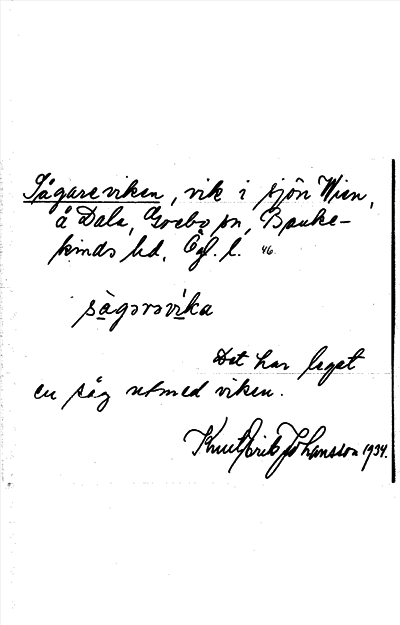 Sågareviken, vik i sjön Wien,
å Dala, Grebo sn, Banke-
kinds hd, Ögl. l. 46
sågərəvika
Det har legat
en såg utmed viken.
Knut Erik Johansson 1934.